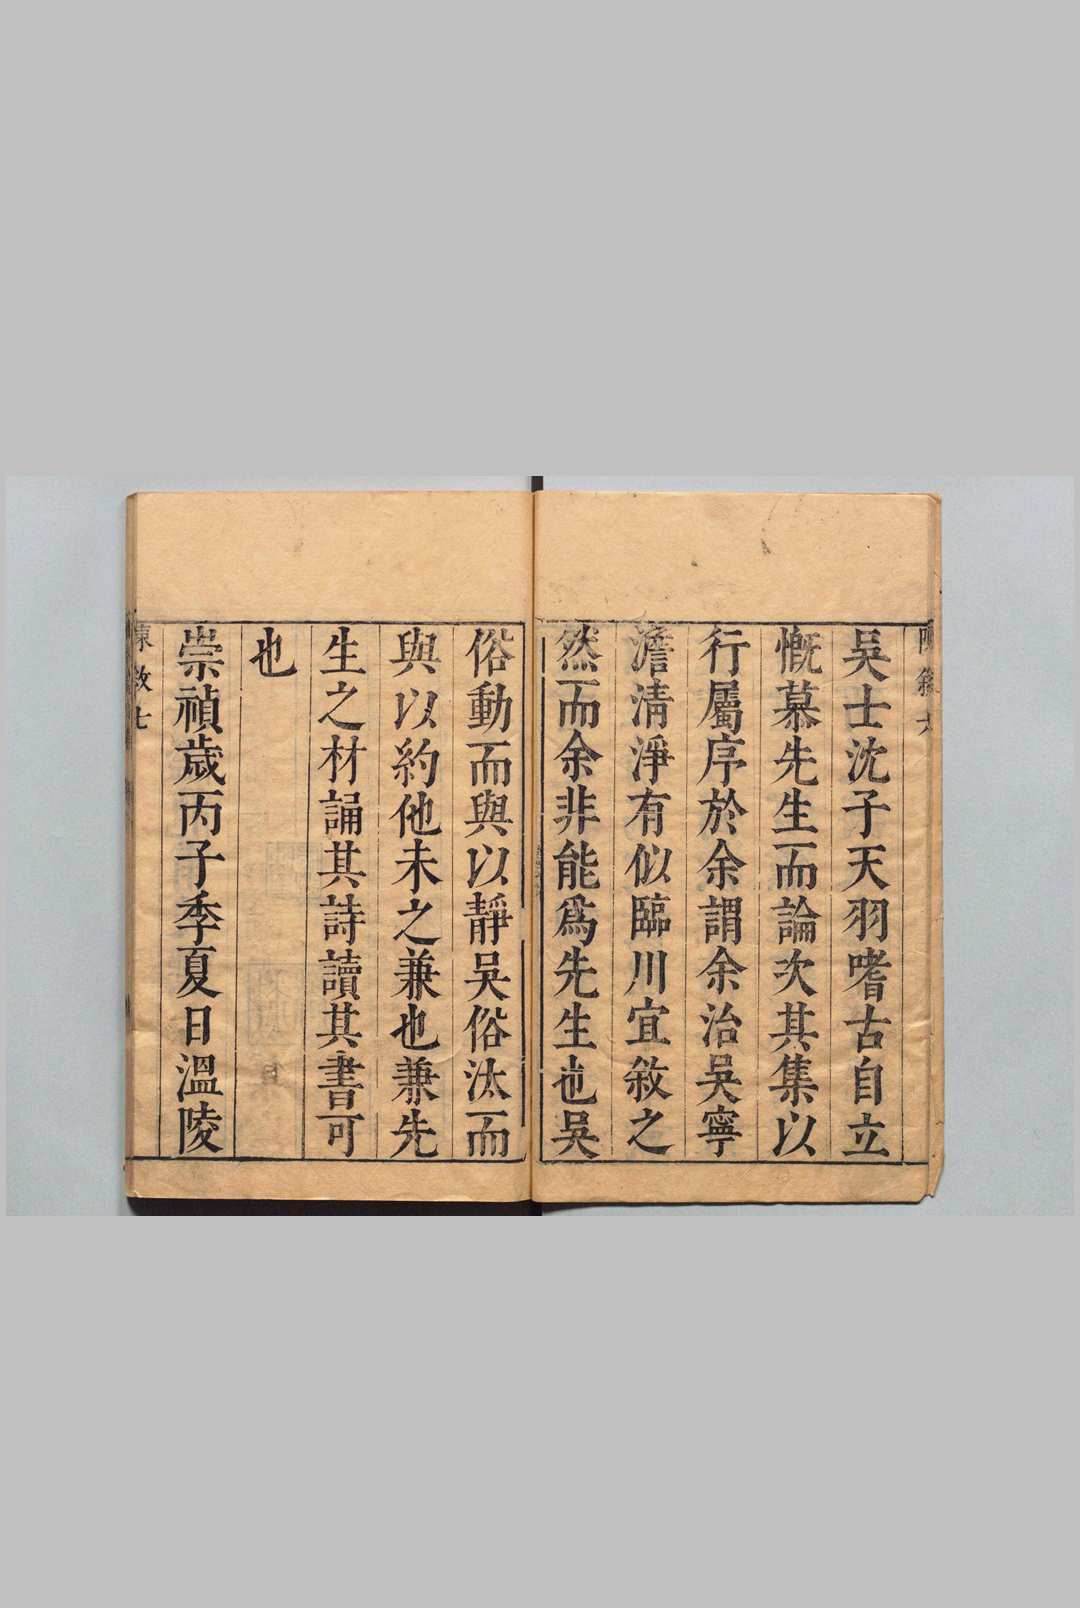 吳士沈子天羽嗜古自立
慨慕先生而論次其集以
行屬序於余謂余治吳寧
澹清淨有似臨川宜敘之
然而余非能爲先生也吳
俗動而與以靜吳俗汰而
與以約他未之兼也兼先
生之材誦其詩讀其書可
也
崇禎歳丙子季夏日溫陵
陳敘七